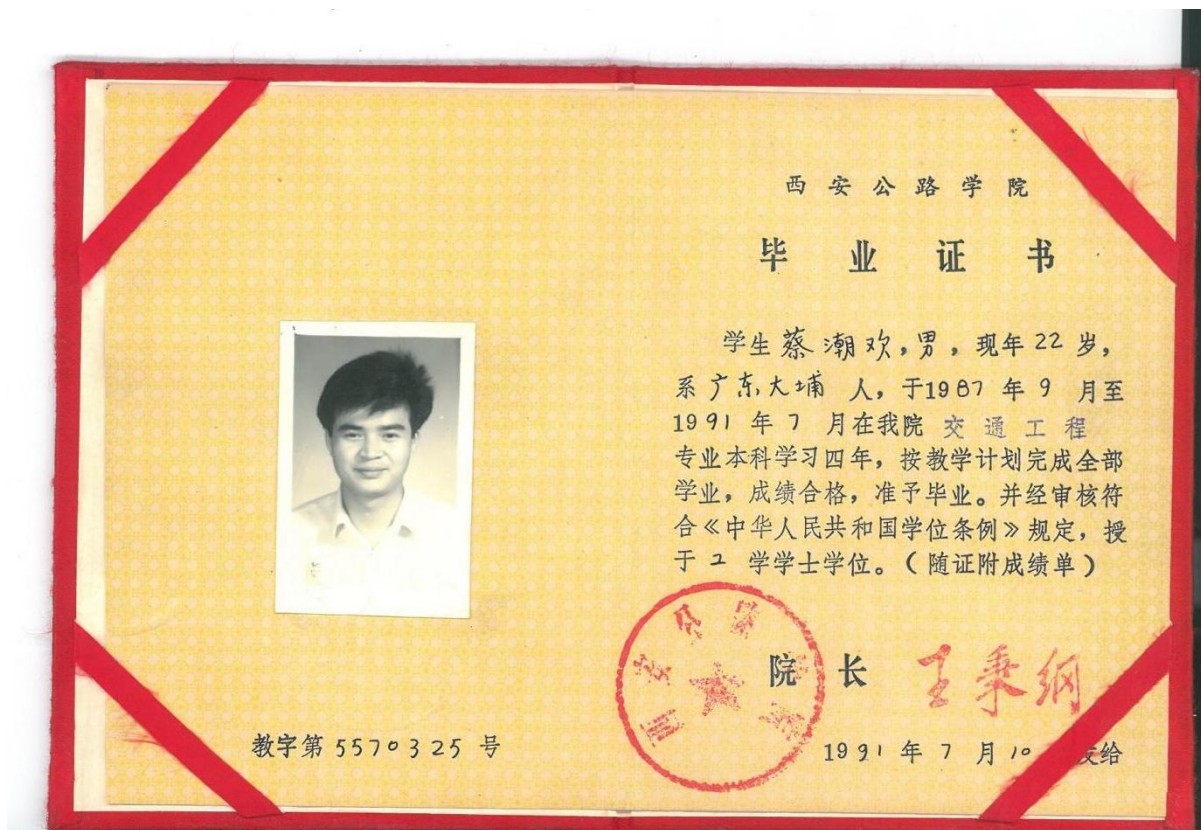 西安公路学院
毕业证书
学生蔡潮欢,男,现年22岁,
系广东大埔人,于1987年9月至
1991年7月在我院交通工程
专业本科学习四年,按教学计划完成全部
学业,成绩合格,准予毕业。并经审核符
合《中华人民共和国学位条例》规定,授
于工学学士学位。(随证附成绩单)
西安公路学院
院长 王秉纲
教字第5570325号
1991年7月10 发给